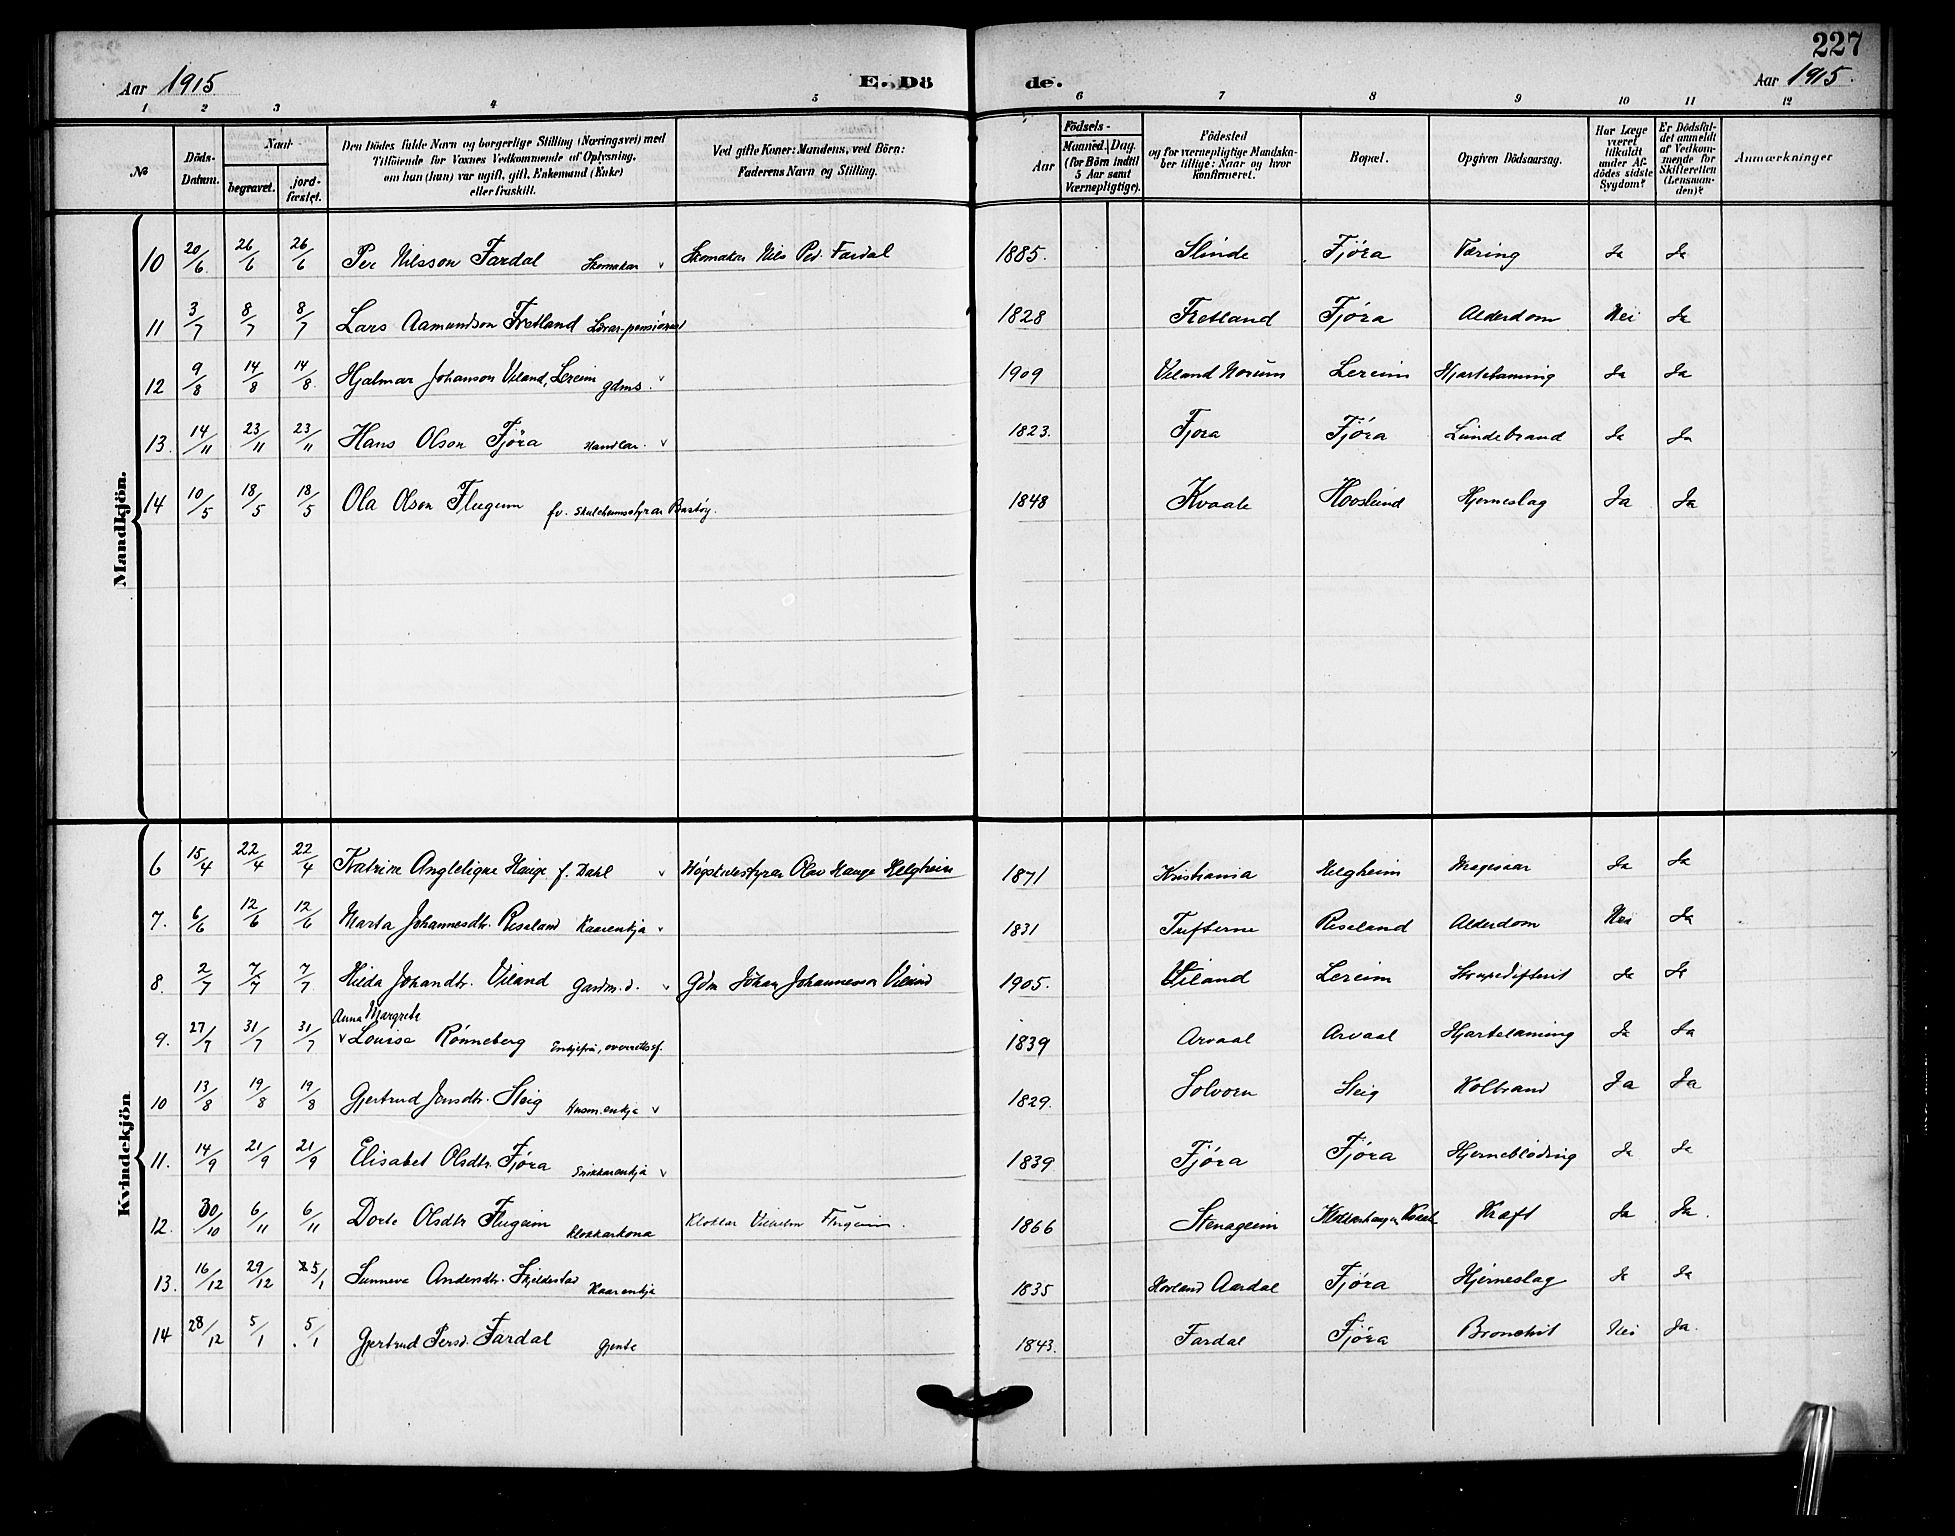 227
Aar 1915. E. Dö de. Aar 1915.
1 2 3 4 5 6 7 8 9 10 11 12
№ Döds-Datum. Naar begravet. jord-fæstet. Den Dödes fulde Navn og borgerlige Stilling (Næringsvei) med Tilföiende for Voxnes Vedkommende af Oplysning, om han (hun) var ugift, gift, Enkemand (Enke) eller fraskilt. Ved gifte Koner: Mandens, ved Börn: Faderens Navn og Stilling. Aar Födsels- Maaned. Dag. (for Börn indtil 5 Aar samt Værnepligtige). Födested og for værnepligtige Mandskaber tillige: Naar og hvor konfirmeret. Bopæl. Opgiven Dödsaarsag. Har Læge været tilkaldt under Afdödes sidste Sygdom? Er Dödsfaldet anmeldt af Vedkommende for Skifteretten (Lensmanden)? Anmærkninger
Mandkjön.
10 20/6 26/6 26/6 Per Nilsson Fardal Skomakar v Skomakar Nils Ped. Fardal 1885. Slinde Fjöra Tæring Ja Ja
11 3/7 8/7 8/7 Lars Aamundson Fretland Lærar-pensionist 1828 Fretland Fjöra Alderdom Nei Ja
12 9/8 14/8 14/8. Hjalmar Johanson Viland, Lereim gdms. v 1909 Viland Norum Lereim Hjartelaming Ja Ja
13. 14/11 23/11 23/11 Hans Olson Fjöra Handlar. v 1823. Fjöra Fjöra Lundebrand Ja Ja
14 10/5 18/5 18/5 Ola Olson Flugum fv. Skuleheimstyrar Bastöy. 1848 Kvaale Hovslund Hjerneslag Ja Ja
Kvindekjön
6 15/4 22/4 22/4 Katrine Angelique Hauge f. Dahl v Högskulestyrar Olav Hauge Helgheim 1871 Kristiania Helgheim Magesaar Ja Ja
7. 6/6 12/6 12/6 Marta Johannesdtr. Riseland Kaarenkja v 1831 Tufterne Riseland Alderdom Nei Ja
8. 2/7 7/7 7/7 Hilda Johandtr. Viland Gardm. d. v Gdm Johan Johannesson Viland 1905. Viland Lereim Strupedifterit Ja Ja
9. 27/7 31/7 31/7 Anna Margrete
v Louise Rønneberg Enkjefru, overrettssf. 1839 Arvaal Arvaal Hjartelaming Ja Ja
10 13/8 19/8 19/8 Gjertrud Jensdtr. Steig Husm.enkja v 1829. Solvorn Steig Kolbrand Ja Ja
11. 14/9 21/9 21/9 Elisabet Olsdtr. Fjöra Snikkarenkja v 1839 Fjöra Fjöra Hjerneblöding Ja Ja
12. 30/10 6/11 6/11 Dorte Olsdtr Flugeim Klokkarkona Klokkar Vilhelm Flugeim. 1866 Stenageim Klokkarhaugen Kvaale Kraft Ja Ja.
13. 16/12 29/12 5/1 Sunneva Andersdtr. Skjeldestad Kaarenkja 1835 Hovland Aardal Fjöra Hjerneslag Ja Ja
14 28/12 5/1 5/1 Gjertrud Persd. Fardal Gjente 1843. Fardal Fjöra Bronchit Nei Ja.